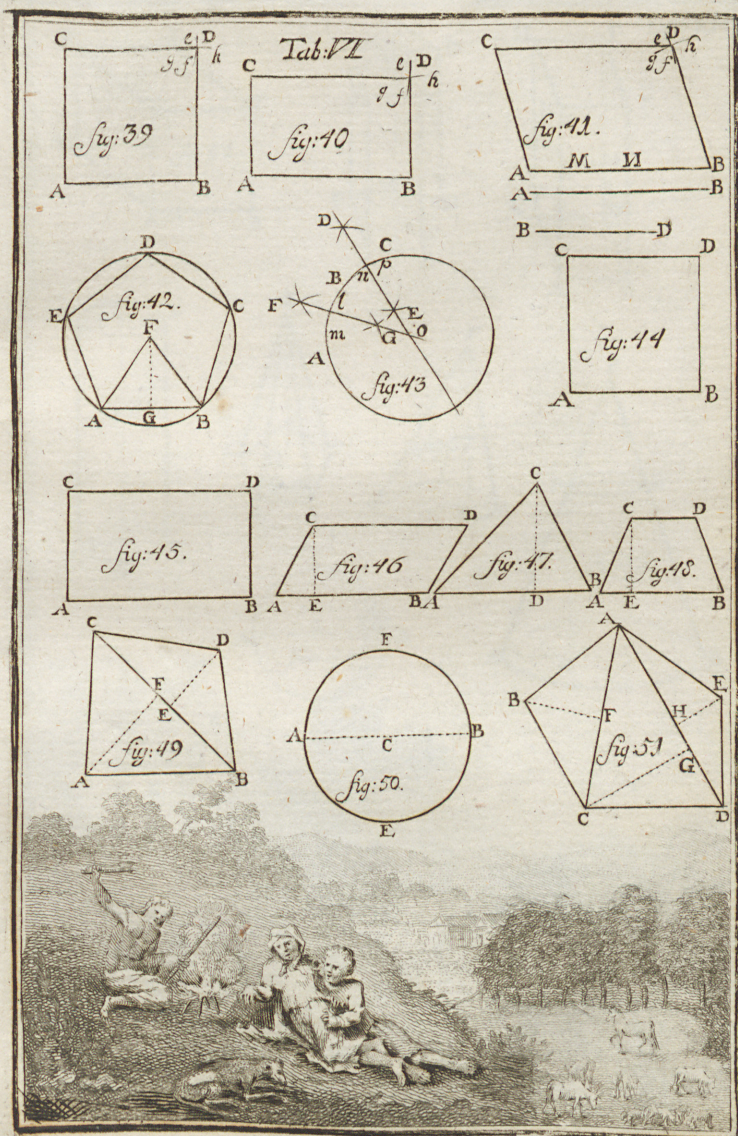 Tab: VI
C e D
g f h
fig: 39
A B
C e D
g f h
fig: 40
A B
C e D
g f h
fig: 41.
A M N B
A B
B D
D
E C
fig: 42.
F
A G B
D C
B n p
F l E
m G O
A
fig: 43
C D
fig: 44
A B
C D
fig: 45.
A B
C D
fig: 46
A E B
C
fig: 47.
A D B
C D
fig: 48.
A E B
C D
F
E
fig: 49
A B
F
A C B
fig: 50.
E
A
B E
F H
fig: 51
G
C D